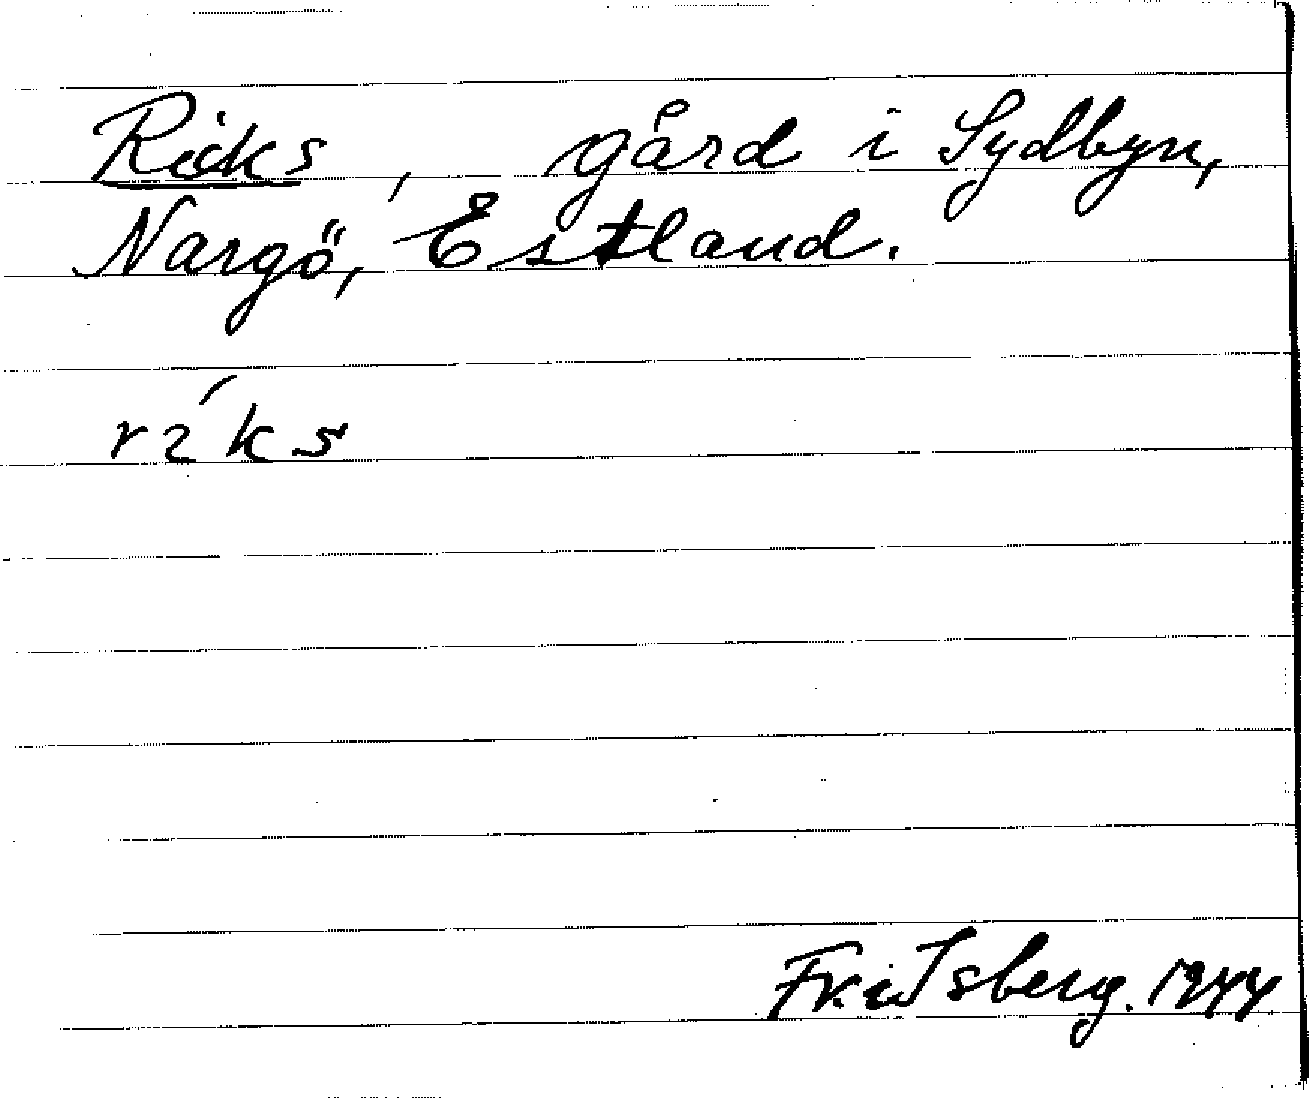 Ricks, gård i Sydbyn,
Nargö, Estland.
ríks
Fridsberg. 1944